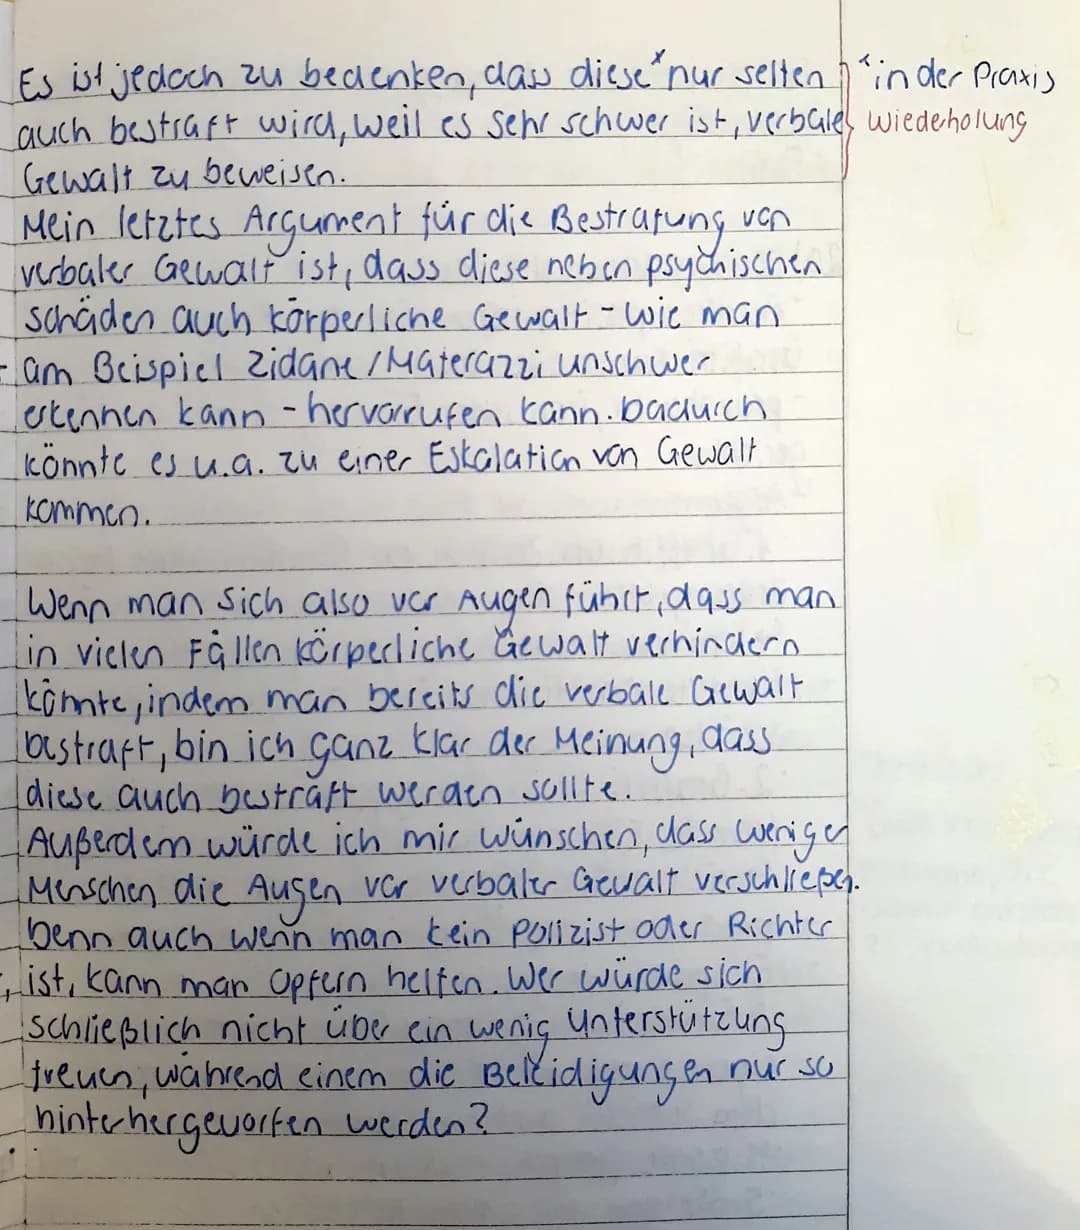 Es ist jedoch zu bedenken, dass diese* nur selten
*in der Praxis
auch bestraft wird, weil es sehr schwer ist, verbale
wiederholung
Gewalt zu beweisen.
Mein letztes Argument für die Bestrafung von
verbaler Gewalt ist, dass diese neben psychischen
schäden auch körperliche Gewalt - wie man
am Beispiel Zidane/Materazzi unschwer
erkennen kann - hervorrufen kann. Dadurch
könnte es u.a. zu einer Eskalation von Gewalt
kommen.
Wenn man sich also vor Augen führt, dass man
in vielen Fällen körperliche Gewalt verhindern
könnte, indem man bereits die verbale Gewalt
bestraft, bin ich ganz klar der Meinung, dass
diese auch bestraft werden sollte.
Außerdem würde ich mir wünschen, dass weniger
Menschen die Augen vor verbaler Gewalt verschließen.
Denn auch wenn man kein Polizist oder Richter
ist, kann man Opfern helfen. Wer würde sich
schließlich nicht über ein wenig Unterstützung
freuen, während einem die Beleidigungen nur so
hinterhergeworfen werden?